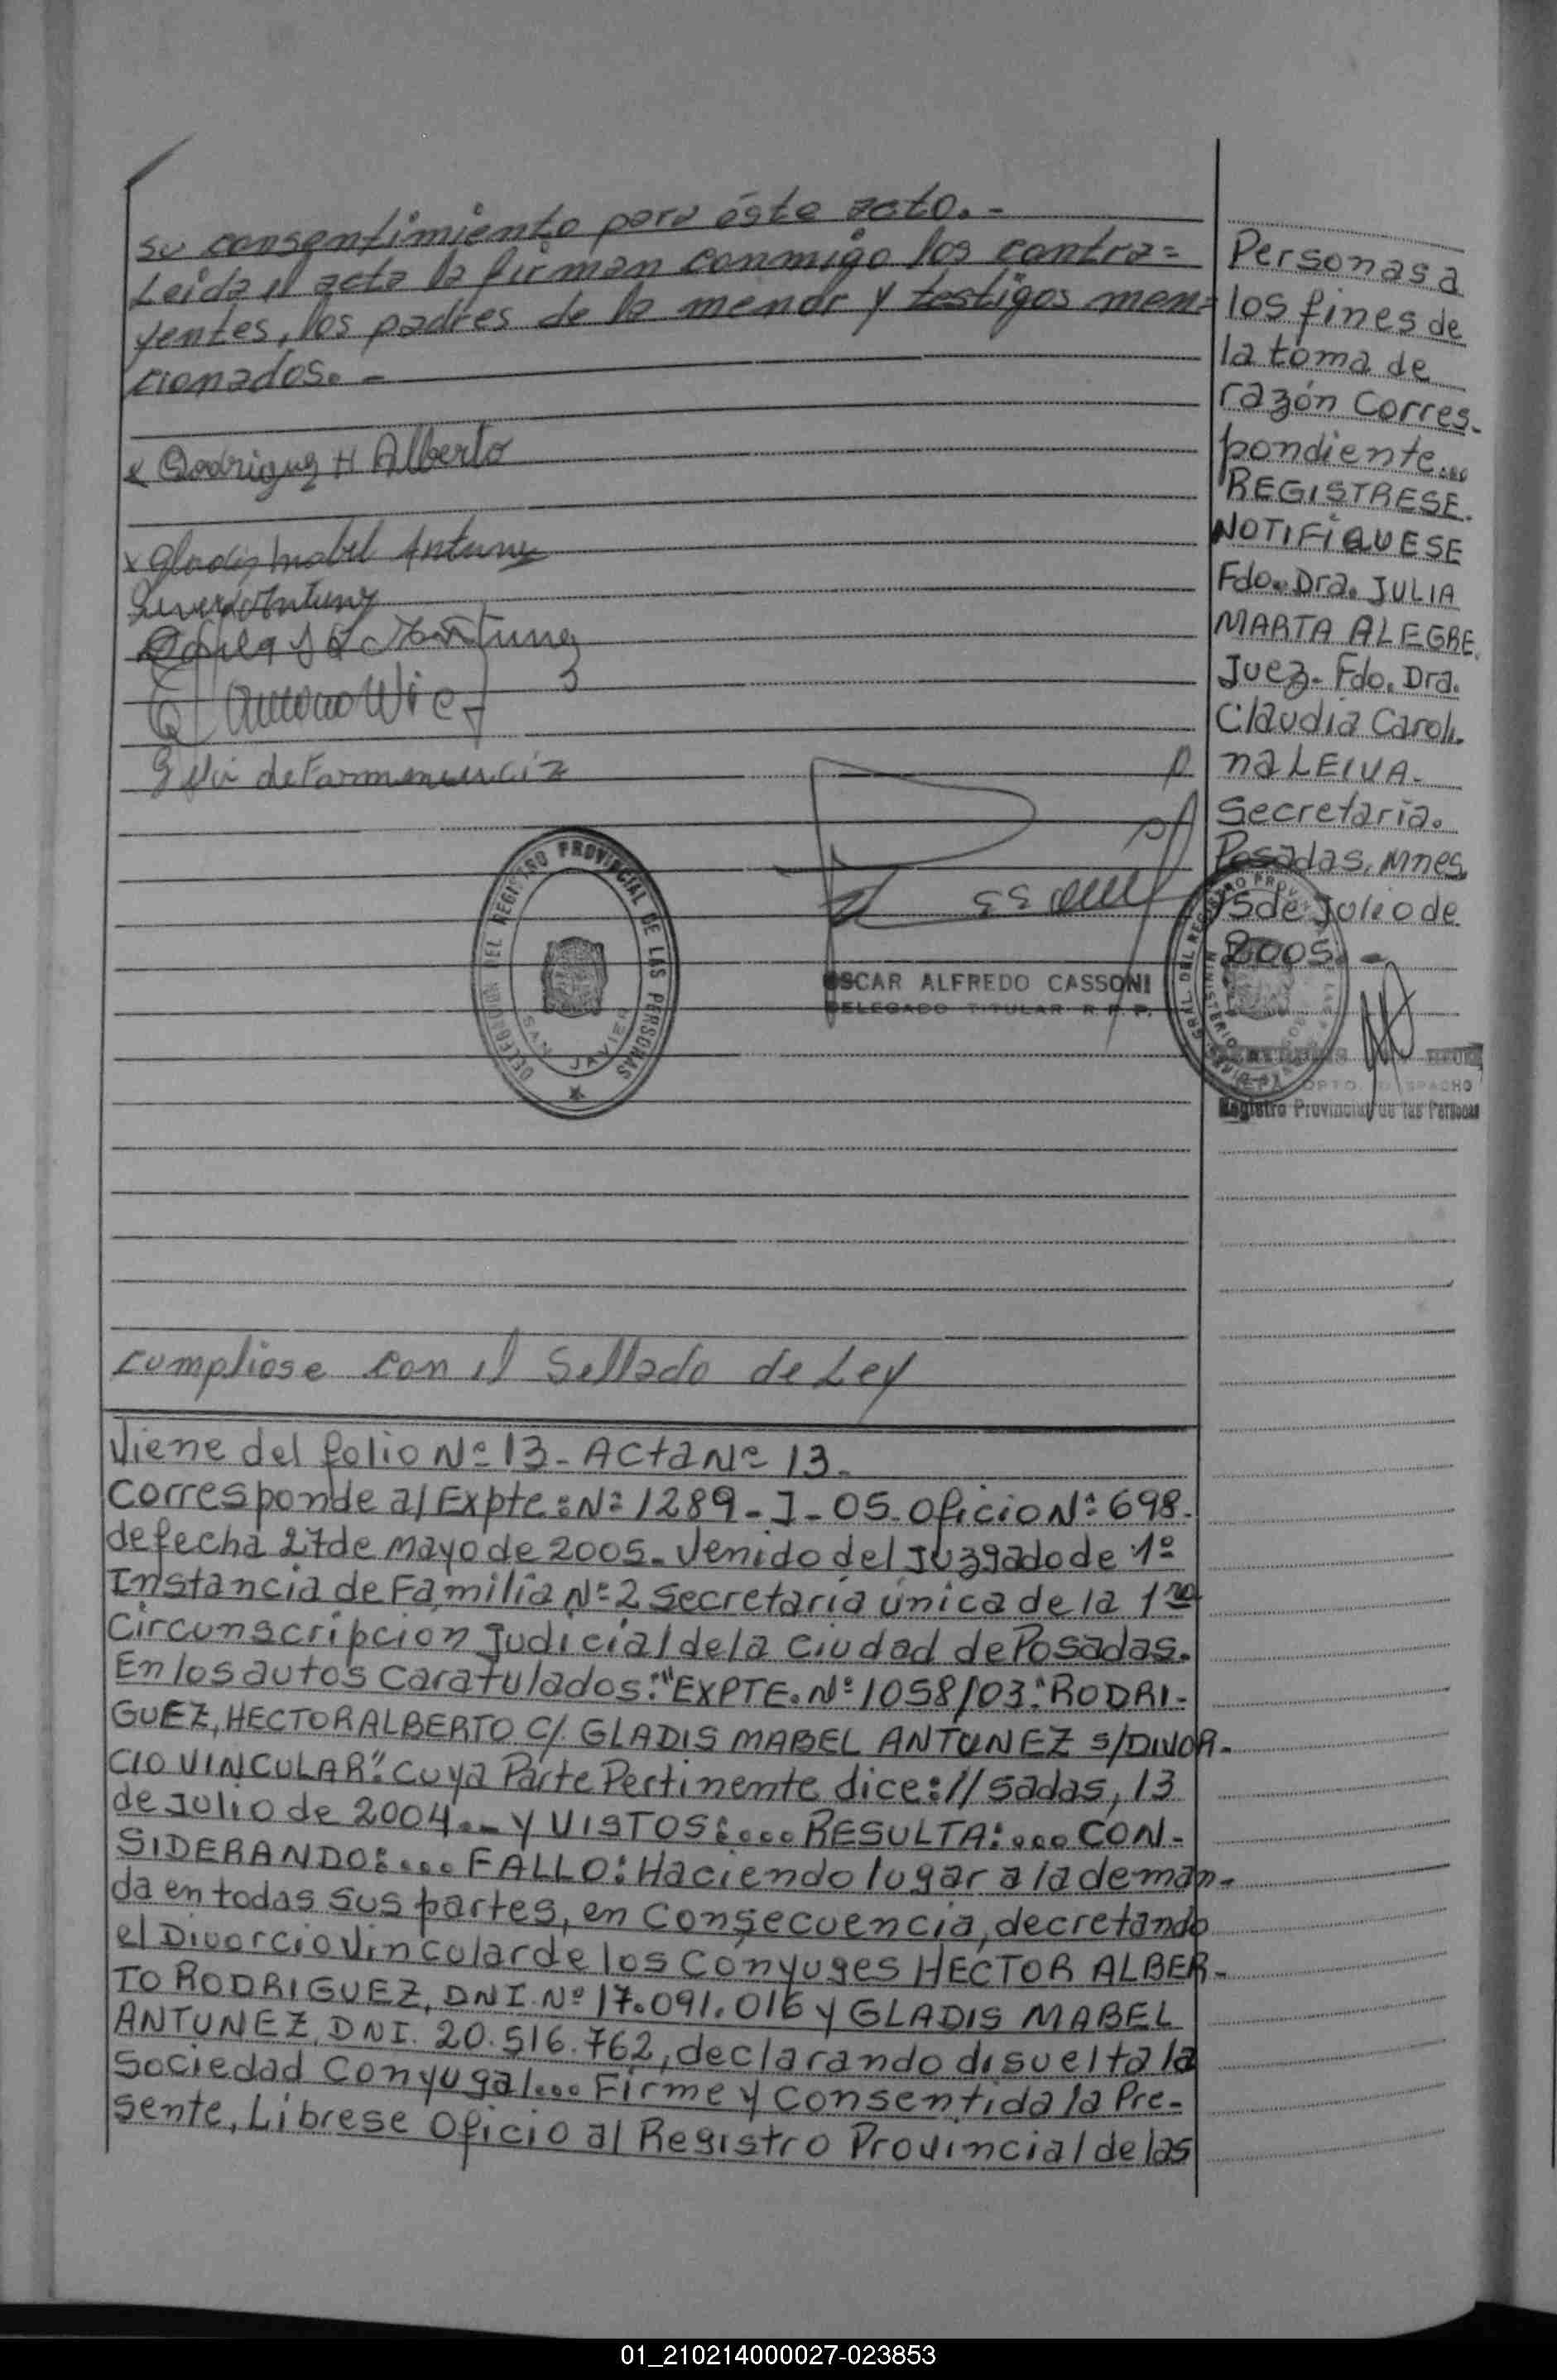 su consentimiento para éste acto.-
Leida el acta la firman conmigo los contra=
yentes, los padres de la menor y testigos men=
cionados.-
x Rodriguez H Alberto
x Gladis Mabel Antunez
Silvi de
DELEGACION DEL REGISTRO PROVINCIAL DE LAS PERSONAS
SAN JAVIER
OSCAR ALFREDO CASSONI
DELEGADO TITULAR R. P. P.
Cumpliose con el Sellado de Ley
Viene del folio Nº 13 - Acta Nº 13.
Corresponde al Expte: Nº 1289-J-05. Oficio Nº 698.
de fecha 27 de Mayo de 2005. Venido del Juzgado de 1º
Instancia de Familia Nº 2 Secretaría única de la 1ra
Circunscripcion Judicial de la Ciudad de Posadas.
En los autos Caratulados: "EXPTE. Nº 1058/03. "RODRI-
GUEZ, HECTOR ALBERTO C/. GLADIS MABEL ANTUNEZ s/DIVOR-
CIO VINCULAR". Cuya Parte Pertinente dice: // sadas, 13
de Julio de 2004... Y VISTOS:... RESULTA:... CON-
SIDERANDO:... FALLO: Haciendo lugar a la deman-
da en todas sus partes, en Consecuencia, decretando
el Divorcio Vincular de los Cónyuges HECTOR ALBER-
TO RODRIGUEZ, DNI. Nº 17.091.016 y GLADIS MABEL
ANTUNEZ, DNI. 20.516.762, declarando disuelta la
Sociedad Conyugal.... Firme y Consentida la Pre-
sente, Líbrese Oficio al Registro Provincial de las
Personas a
los fines de
la toma de
razón Corres-
pondiente...
REGISTRESE.
NOTIFIQUESE
Fdo. Dra. JULIA
MARTA ALEGRE.
Juez. Fdo. Dra.
Claudia Caroli-
na LEIVA.
Secretaria.
Posadas, Mnes,
15 de Julio de
2005.-
DPTO. DESPACHO
Registro Provincial de las Personas
01_210214000027-023853